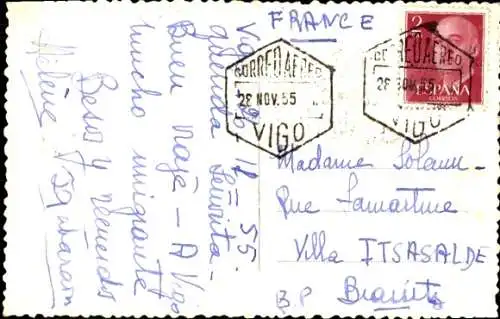 FRANCE
2
ESPAÑA
CORREOS
CORREO AEREO
28 NOV. 55
VIGO
CORREO AEREO
28 NOV. 55
VIGO
Vigo 12 = 55.
querida Señorita -
Buen viaje - A Vigo
mucho
Besos y recuerdos
Hélène
Madame
Rue Lamartine
Villa ITSASALDE
B.P Biarritz